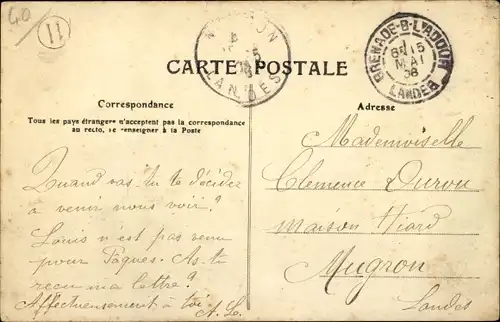 40
11
MUGRON
LANDES
GRENADE-S-L'ADOUR
15
MAI
08
LANDES
CARTE POSTALE
Correspondance
Adresse
Tous les pays étrangers n'acceptent pas la correspondance
au recto, se renseigner à la Poste
Quand vas-tu te décider
à venir nous voir?
Louis n'est pas venu
pour Pâques. As-tu
reçu ma lettre?
Affectueusement à toi A. L.
Mademoiselle
Clemence Durou
maison Hiard
Mugron
Landes